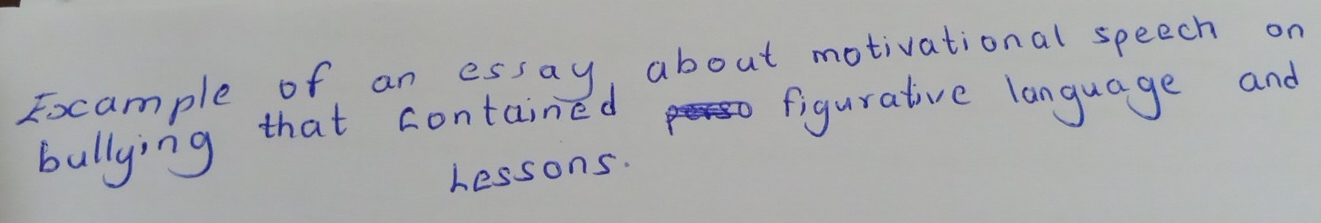 Example of an essay, about motivational speech on
bullying that contained figurative language and
Lessons.